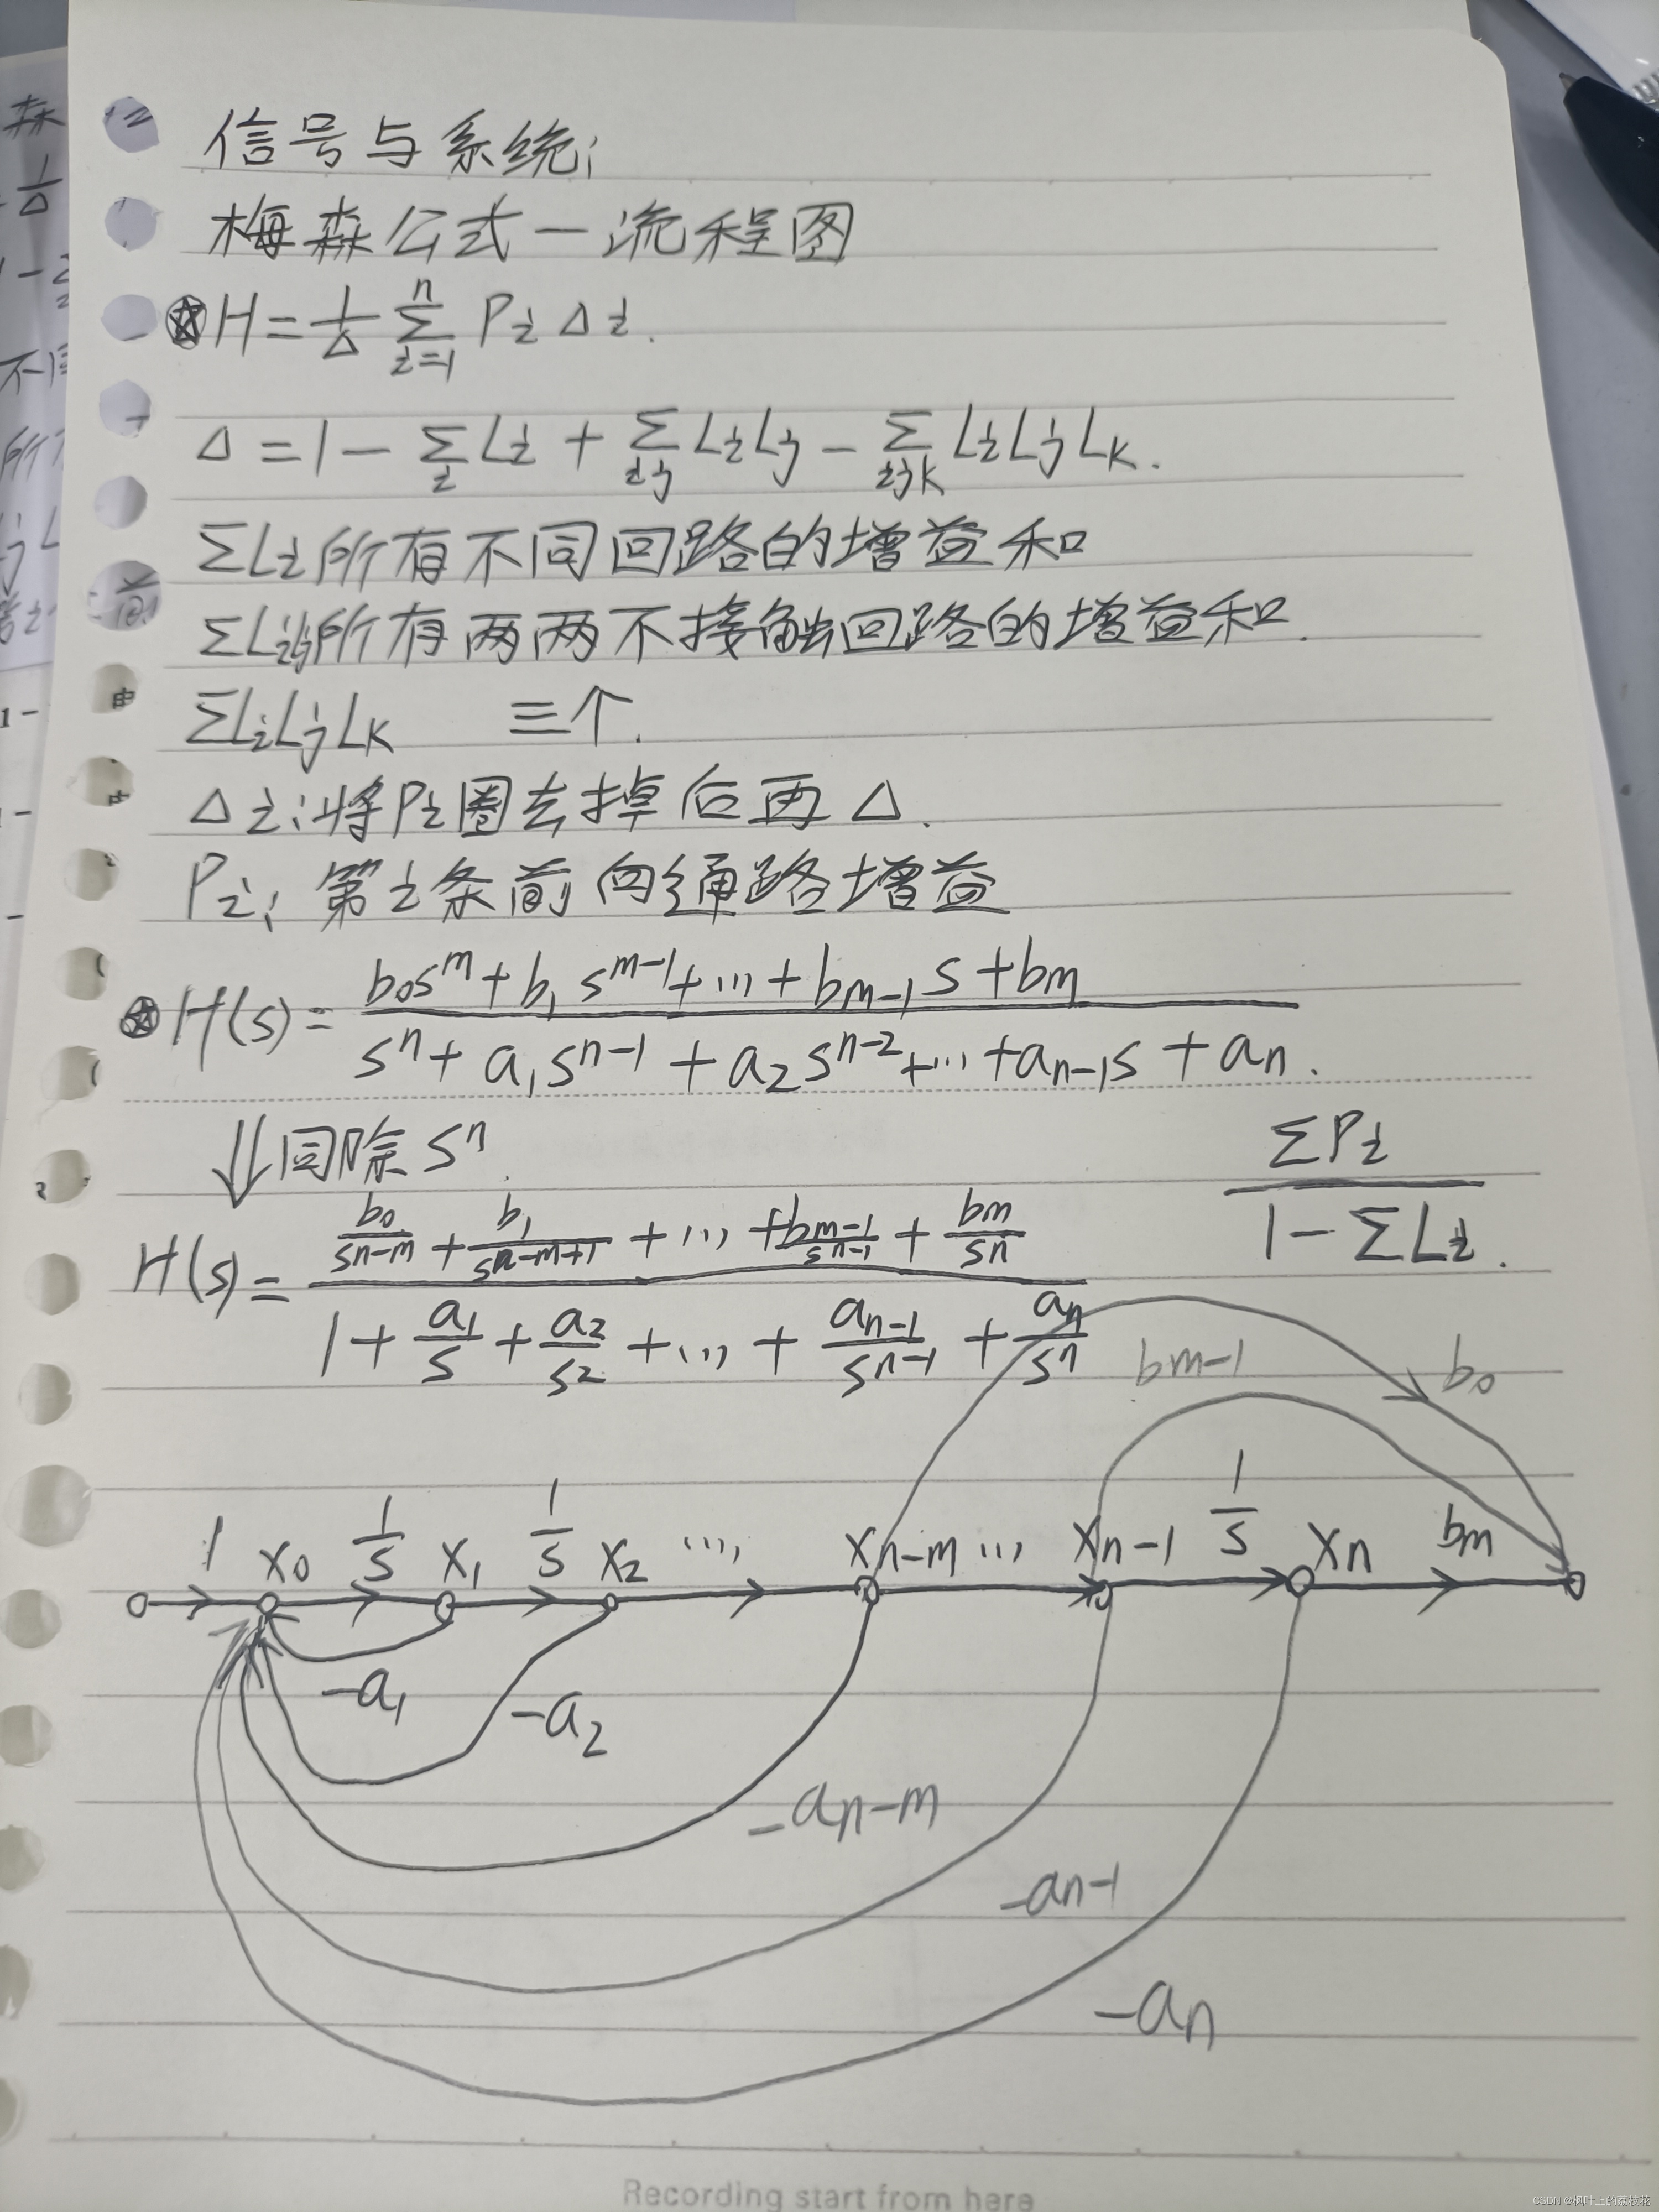 信号与系统:
梅森公式—流程图
H = 1/Δ Σ_{i=1}^{n} Pi Δi.
Δ = 1 - Σ_i Li + Σ_{ij} LiLj - Σ_{ijk} LiLjLk.
ΣLi所有不同回路的增益和
ΣLiLj所有两两不接触回路的增益和.
ΣLiLjLk 三个.
Δi:将Pi圈去掉后再Δ.
Pi: 第i条前向通路增益
H(s) = (b0s^m + b1s^{m-1} + ... + bm-1s + bm) / (s^n + a1s^{n-1} + a2s^{n-2} + ... + an-1s + an).
⇓同除s^n.
ΣPi / (1 - ΣLi).
H(s) = (b0/s^{n-m} + b1/s^{n-m+1} + ... + bm-1/s^{n-1} + bm/s^n) / (1 + a1/s + a2/s^2 + ... + an-1/s^{n-1} + an/s^n)
bm-1 b0
1 x0 1/s x1 1/s x2 ... xn-m ... xn-1 1/s xn bm
-a1 -a2
-an-m
-an-1
-an
Recording start from here
CSDN @枫叶上的荔枝花